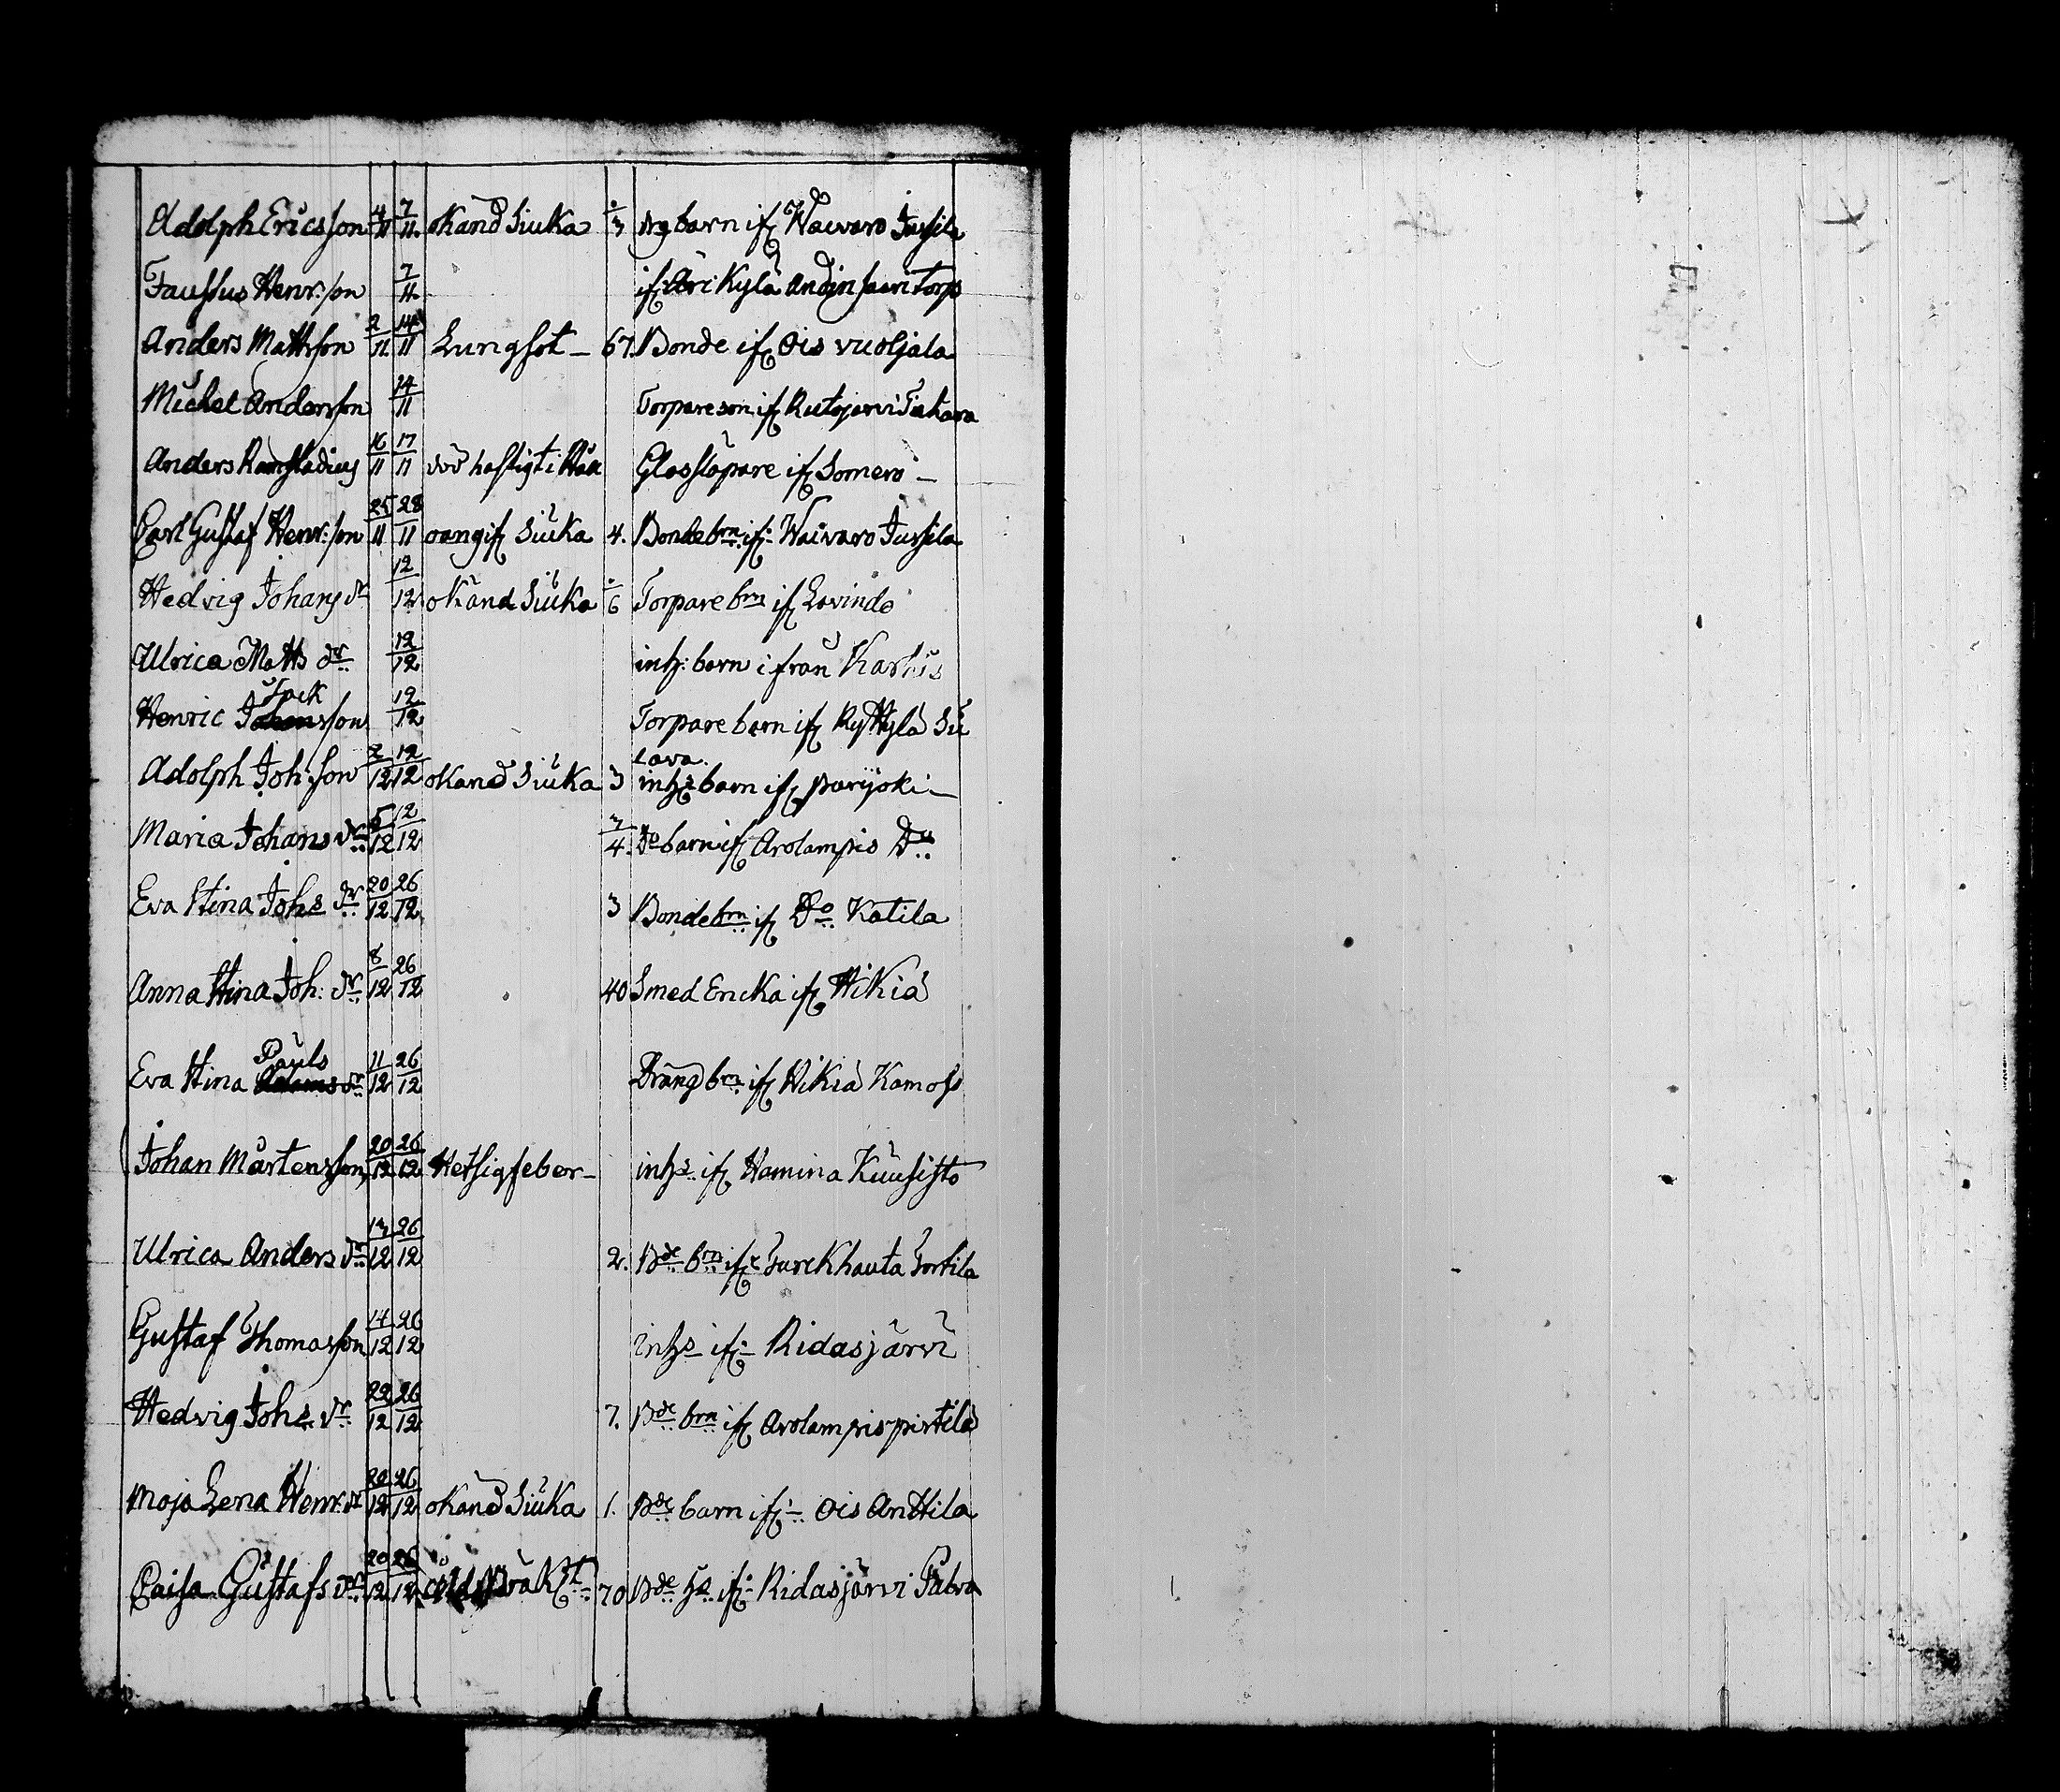 Adolph Ericsson 4/11 7/11. okänd Siuka ./3 Drg barn if Waivaro Jussila
Faussus Henr:son 7/11. if: Äri Kylä Andin saari torp
Anders Mattsson 2/11. 14/11 Lungsot – 67. Bonde if Ois vuoljala
Michel Andersson 14/11 Torpareson if Rutojarvi
Anders Ramstadius 16/11 17/11 död hastigt i Glaslöpare if Somero –
Carl Gustaf Henr:son 25/11 28/11 oangif Siuka 4. Bonde brn if: Waivaro Jussila
Hedvig Johans dr 12/12. okänd Siuka ./6 Torpare brn if Lovinde
Ulrica Matts dr 12/12 inh: barn ifrån Karhis
Jack
Henric Johansson 12/12 Torpare barn if Ryttylä Su
lava.
Adolph Joh:son 2/12 12/12 okänd Siuka 3 inhs barn if parijoki –
Maria Johans dr 5/12 12/12 3/4. Do barn if Arolampis Do
Eva Stina Johs dr 20/12 26/12 3 Bonde brn if Do Katila
Anna Stina Joh: dr 8/12 26/12 40 Smed Encka if Hikiä
Pauls
Eva Stina Adams dr 11/12 26/12 Dräng brn if Hikiä Kamoss
Johan Mårtensson 20/12 26/12 Hetsigfeber – inhs if Hamina Kuusisto
Ulrica Anders dr 13/12 26/12 2. Bde brn if: Turckhauta
Gustaf Thomasson 14/12 26/12 inhs if: Ridasjärvi
Hedvig Johs dr 22/12 26/12 7. Bde brn if Arolampis pirtilä
Maja Lena Henr: dr 22/12 26/12 okänd Siuka 1. Bde barn if: Ois Anttila
Caisa Gustafs dr 20/12 26/12 70 Bde if: Ridasjärvi